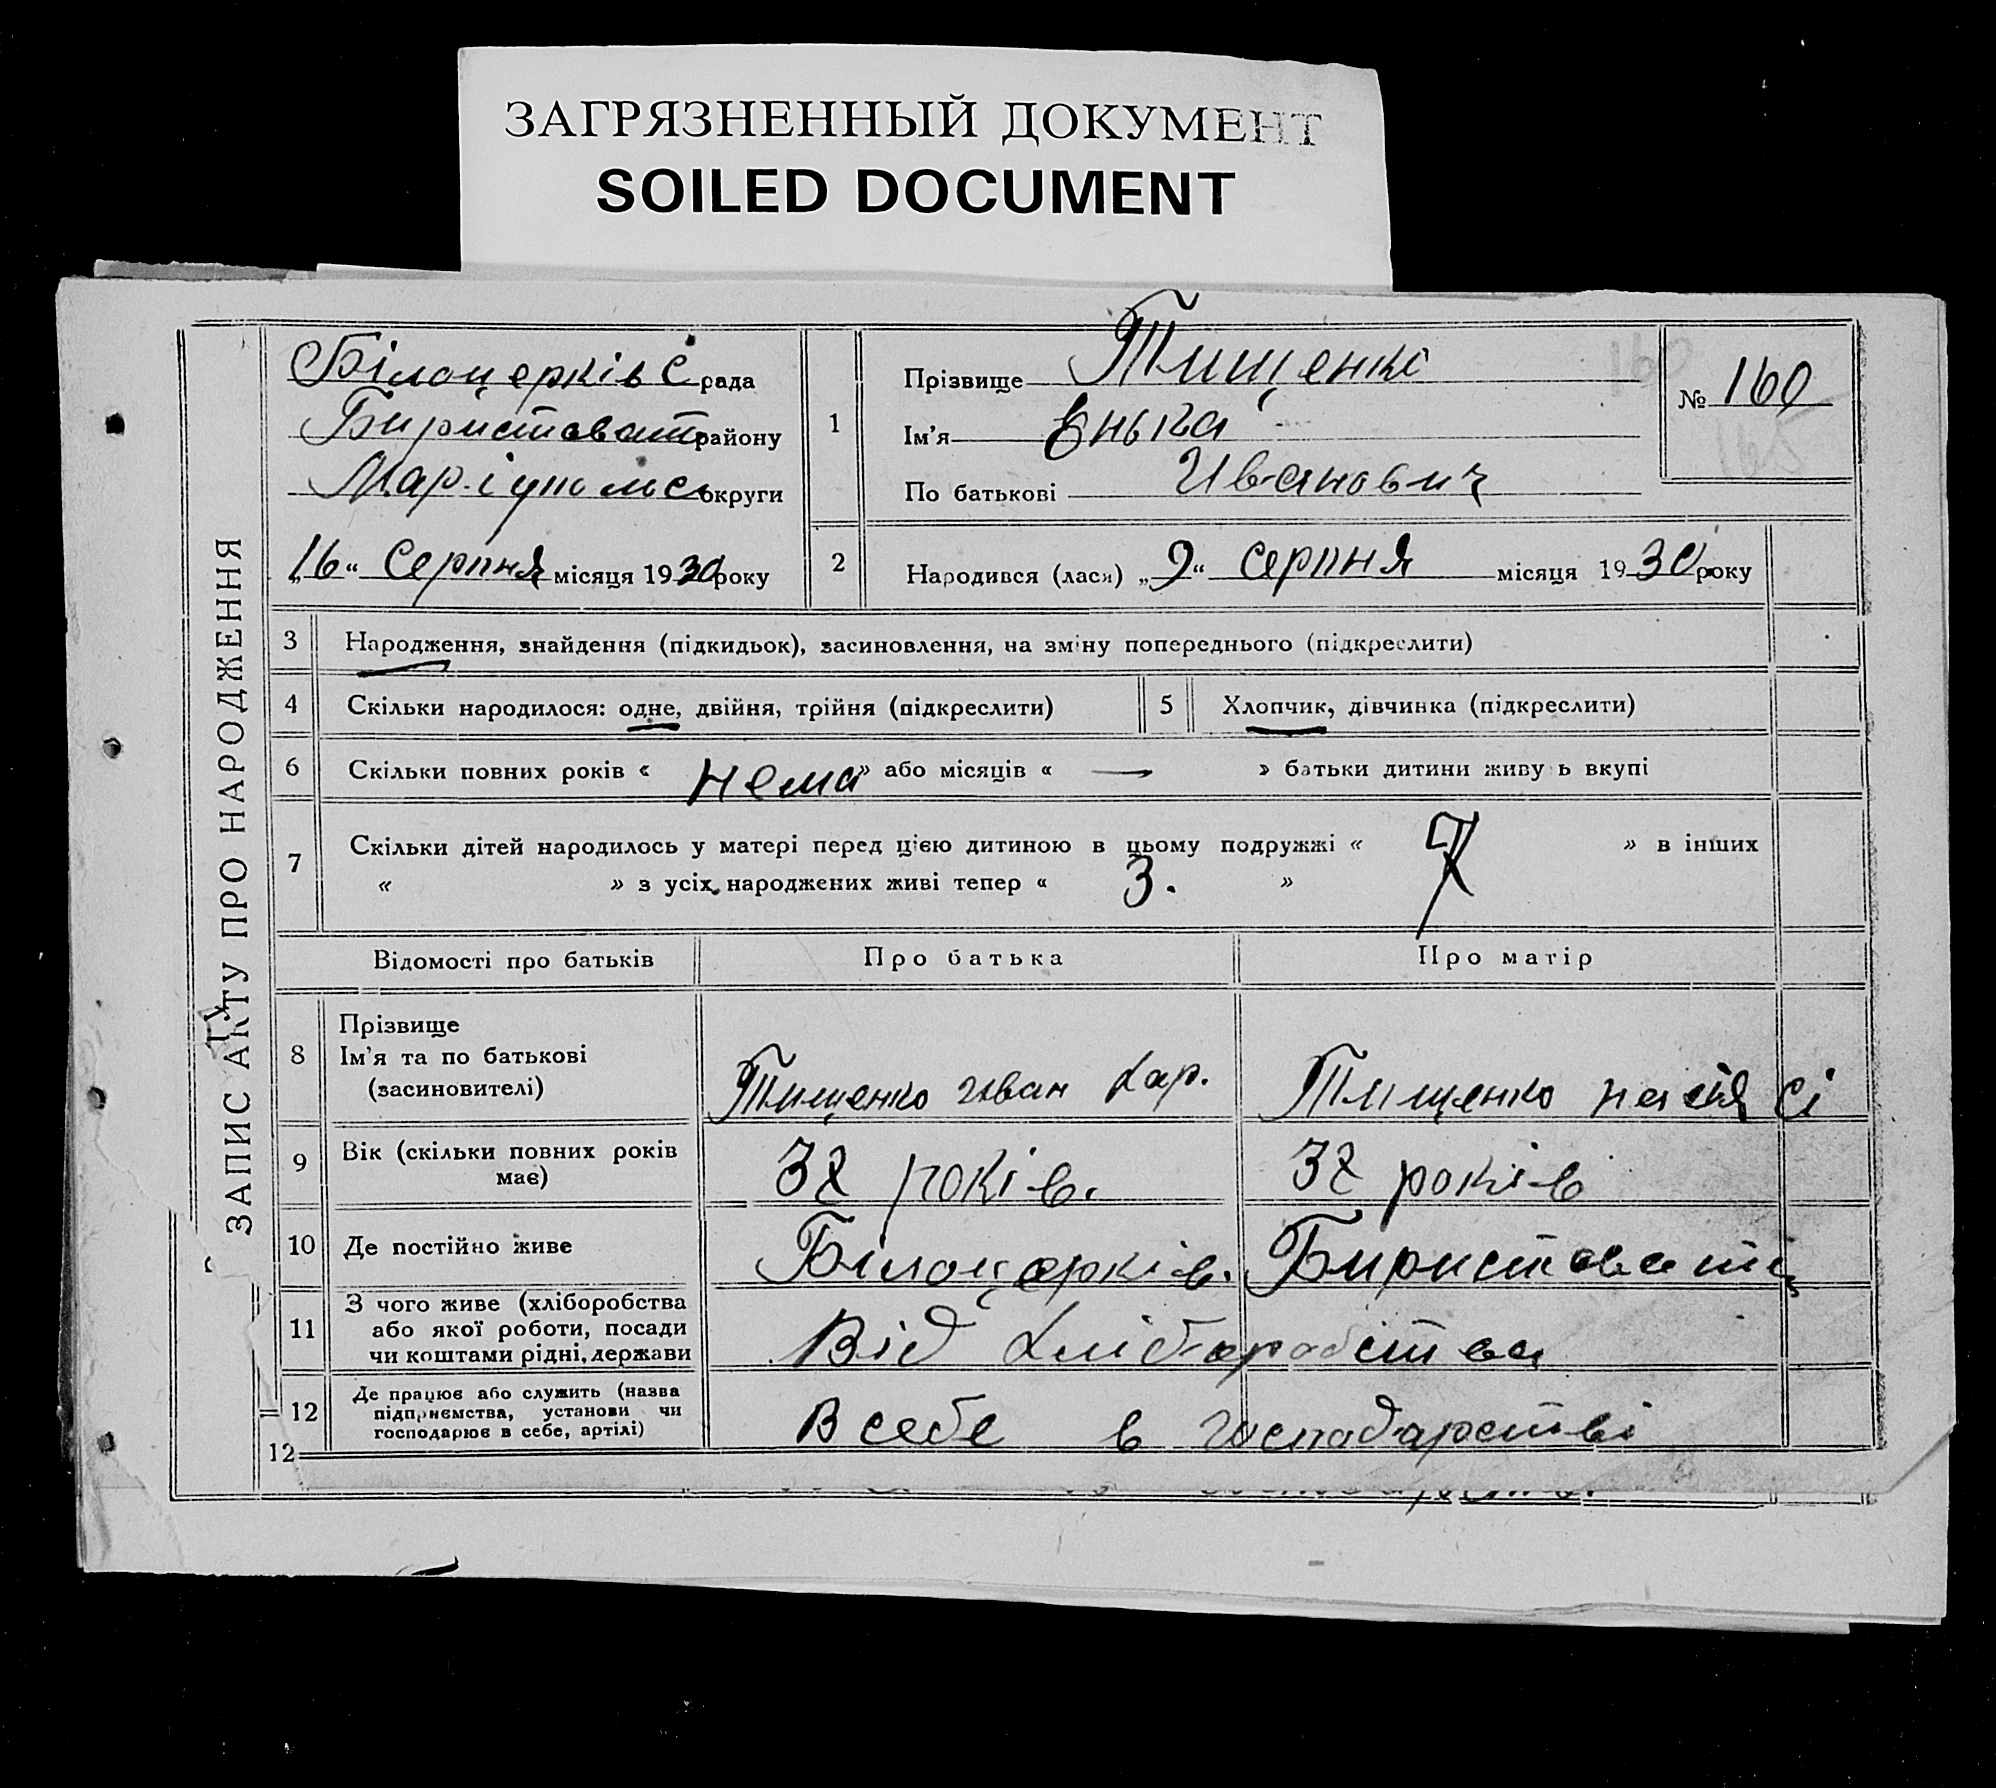 ЗАГРЯЗНЕННЫЙ ДОКУМЕНТ
SOILED DOCUMENT
ЗАПИС АКТУ ПРО НАРОДЖЕННЯ
Білоцерківс рада
району
Маріупольс округи
„16“ Серпня місяця 1930 року
1
Прізвище Тищенко
Ім'я
По батькові Иванович
№ 160
160
165
2
Народився (лася) „9“ серпня місяця 1930 року
3 Народження, знайдення (підкидьок), засиновлення, на зміну попереднього (підкреслити)
4 Скільки народилося: одне, двійня, трійня (підкреслити)
5 Хлопчик, дівчинка (підкреслити)
6 Скільки повних років « нема » або місяців « — » батьки дитини живуть вкупі
7 Скільки дітей народилось у матері перед цією дитиною в цьому подружжі « 7 » в інших
« » з усіх народжених живі тепер « 3. »
Відомості про батьків Про батька Про матір
8 Прізвище
Ім'я та по батькові
(засиновителі)
Тищенко Иван Хар.
Тищенко
9 Вік (скільки повних років
має)
38 років.
38 років
10 Де постійно живе Білоцерків.
11 З чого живе (хліборобства
або якої роботи, посади
чи коштами рідні, держави
Від хліборобства
12 Де працює або служить (назва
підприємства, установи чи
господарює в себе, артілі)
В себе в господарстві
12